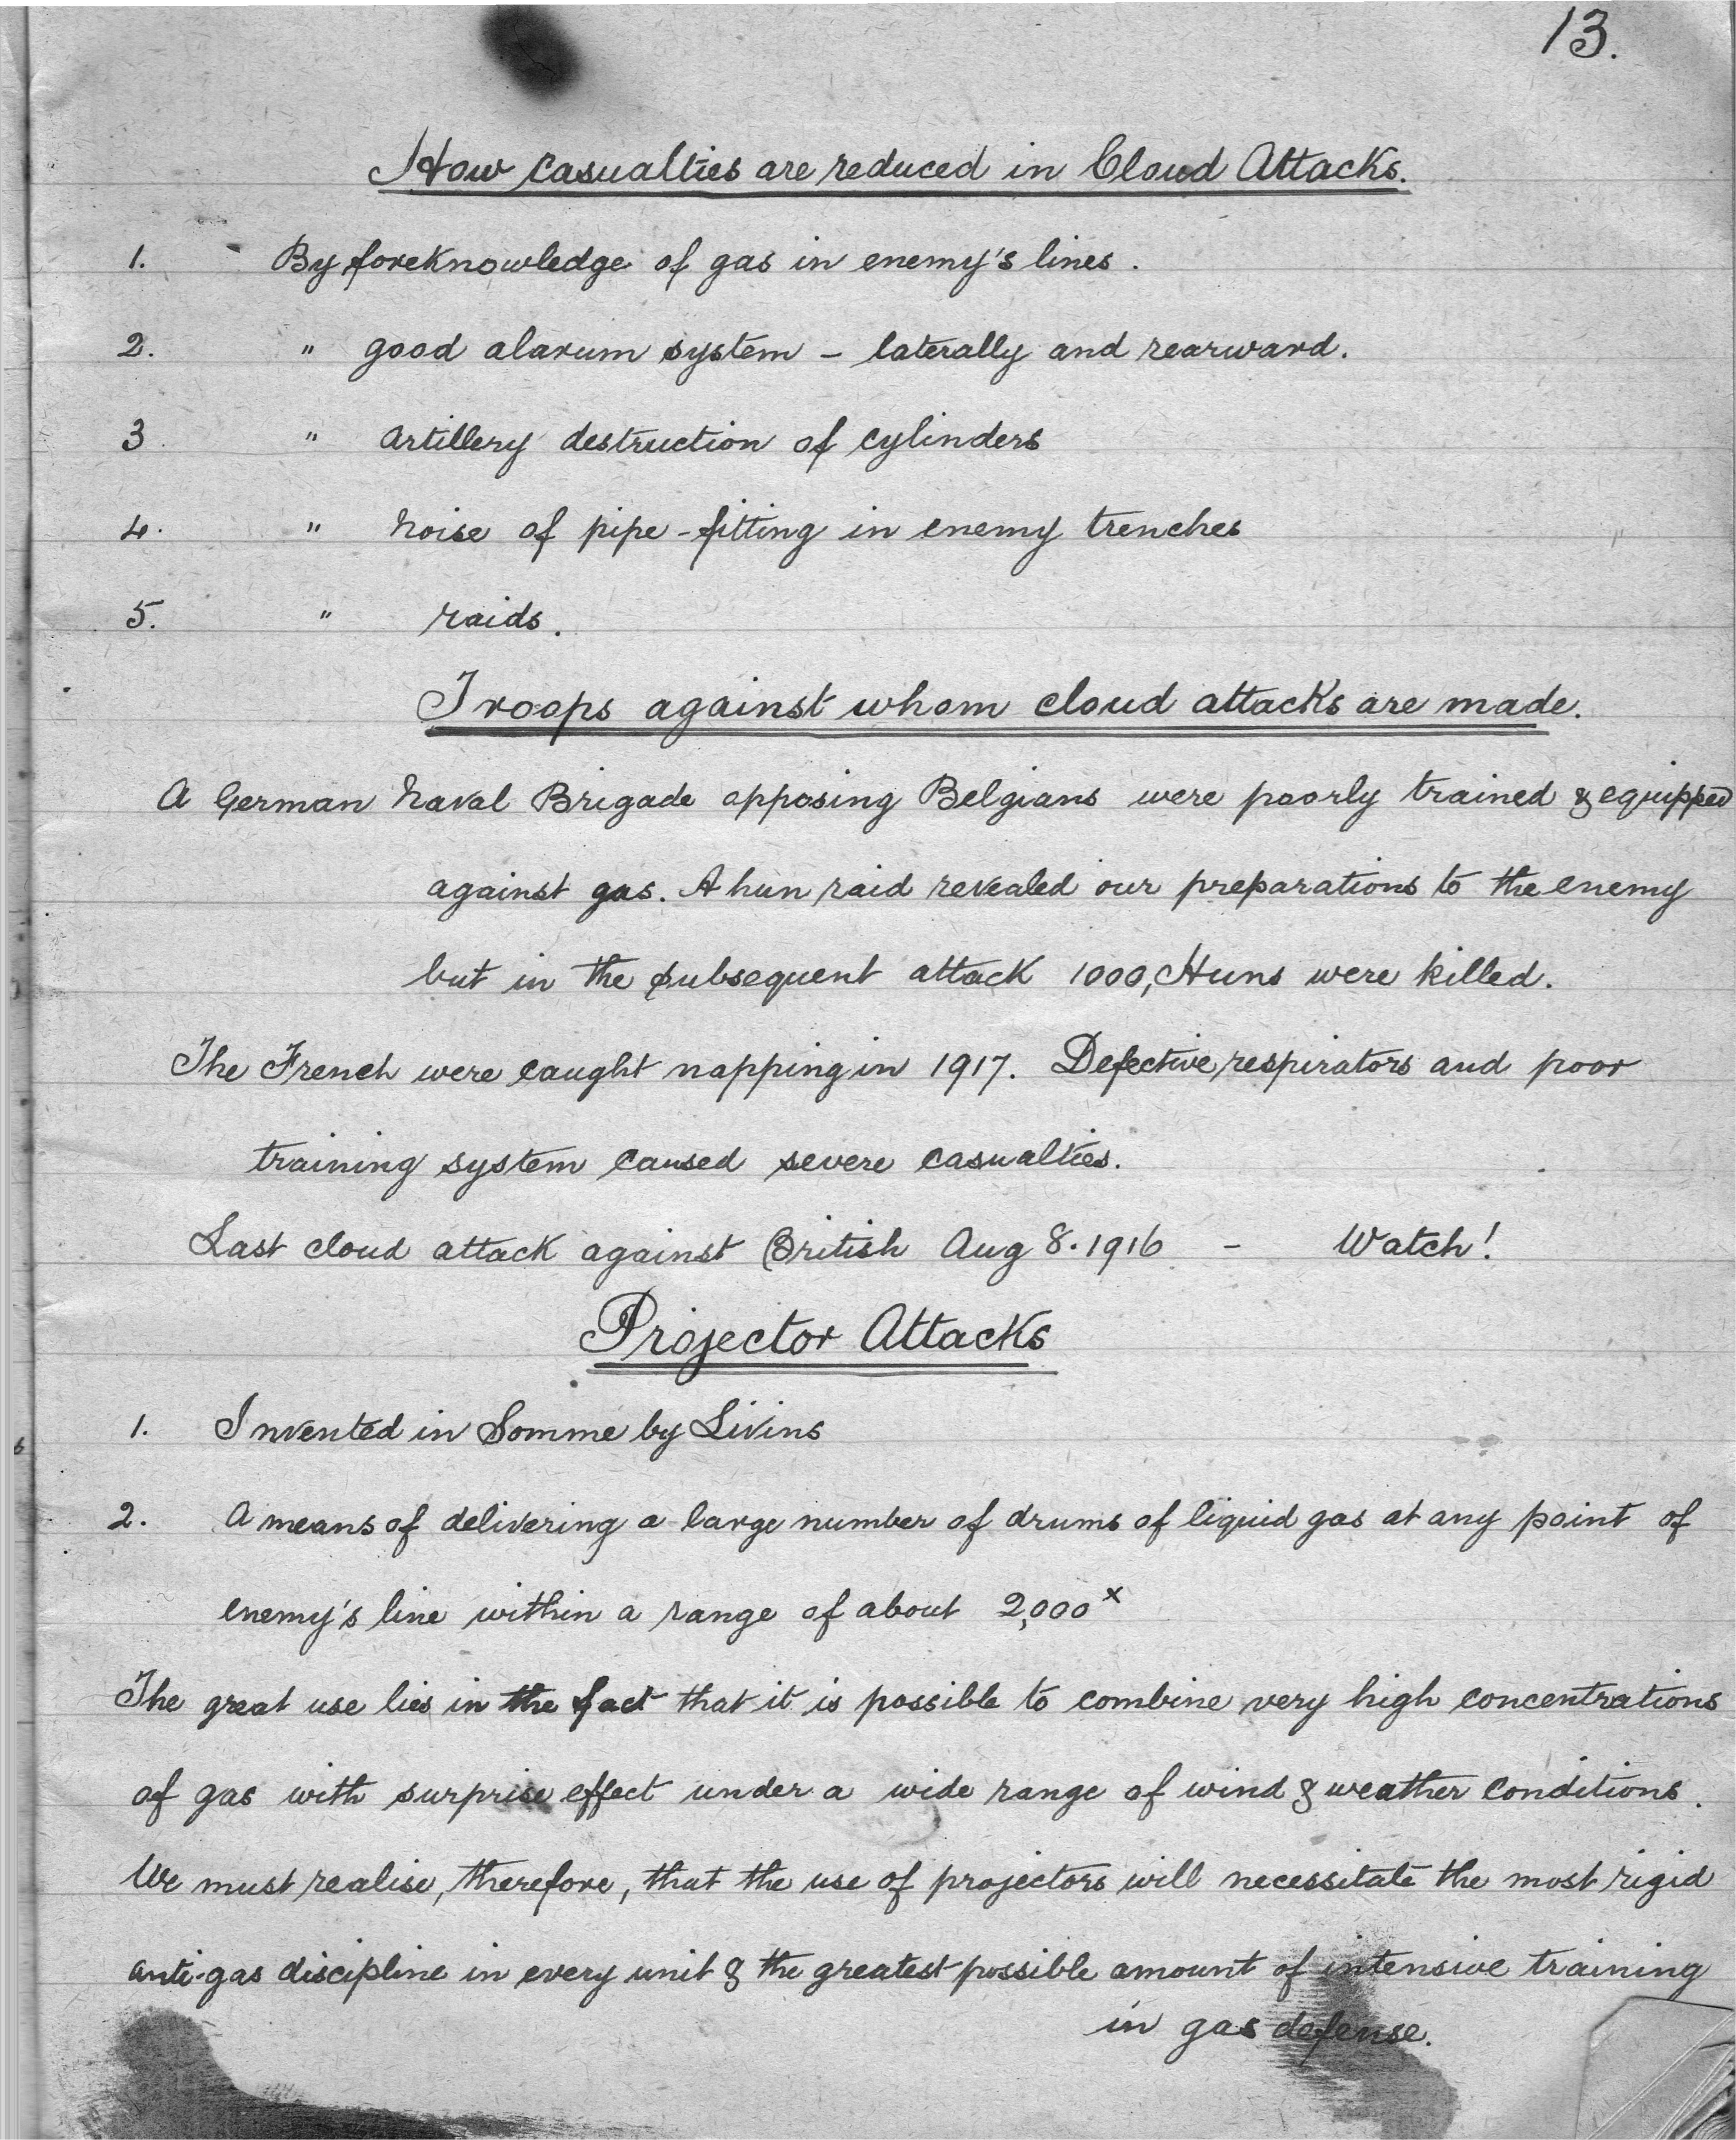 13.
How casualties are reduced in Cloud Attacks.
1. By foreknowledge of gas in enemy's lines.
2. " good alarum system – laterally and rearward.
3 " artillery destruction of cylinders
4. " noise of pipe-fitting in enemy trenches
5. " raids.
Troops against whom cloud attacks are made.
A German Naval Brigade opposing Belgians were poorly trained & equipped
against gas. A hun raid revealed our preparations to the enemy
but in the subsequent attack 1000, Huns were killed.
The French were caught napping in 1917. Defective respirators and poor
training system caused severe casualties.
Last cloud attack against British Aug 8. 1916 – Watch!
Projector Attacks
1. Invented in Somme by Livins
2. A means of delivering a large number of drums of liquid gas at any point of
enemy's line within a range of about 2,000ˣ
The great use lies in the fact that it is possible to combine very high concentrations
of gas with surprise effect under a wide range of wind & weather conditions.
We must realise, therefore, that the use of projectors will necessitate the most rigid
anti-gas discipline in every unit & the greatest possible amount of intensive training
in gas defense.